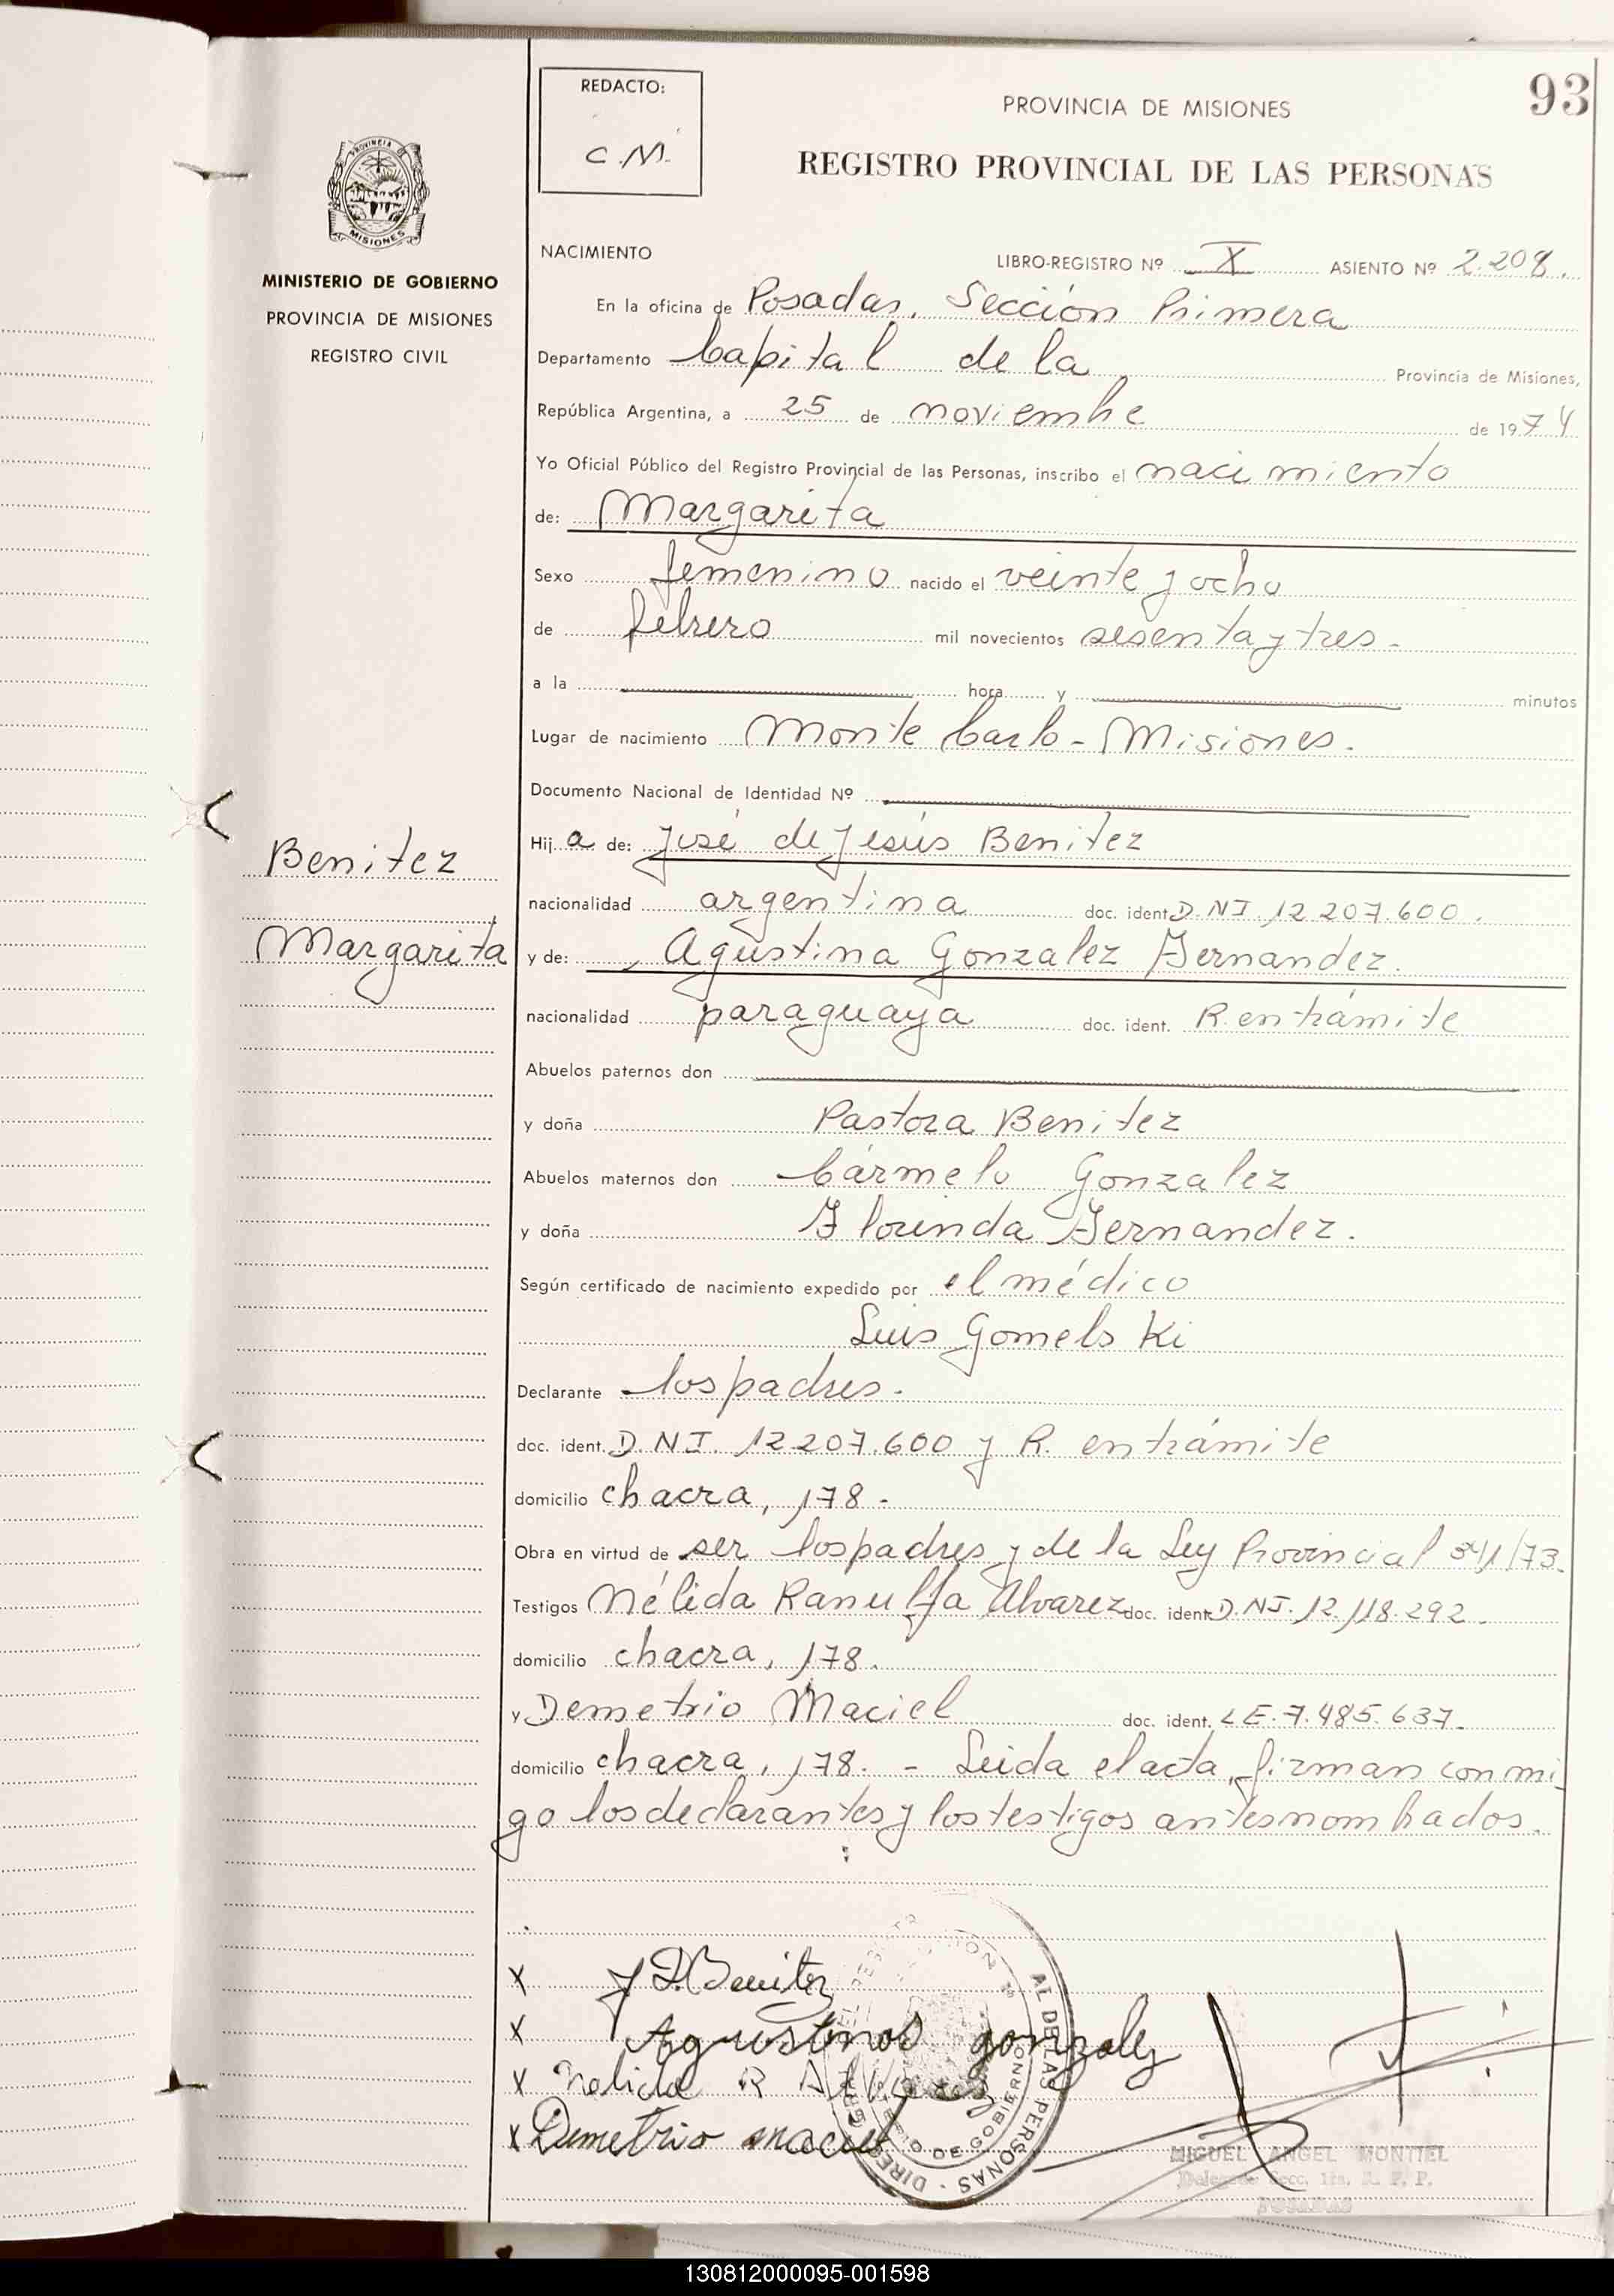 93
REDACTO:
C.M.
PROVINCIA DE MISIONES
REGISTRO PROVINCIAL DE LAS PERSONAS
PROVINCIA DE
MISIONES
MINISTERIO DE GOBIERNO
PROVINCIA DE MISIONES
REGISTRO CIVIL
NACIMIENTO LIBRO-REGISTRO Nº X ASIENTO Nº 2.208.
En la oficina de Posadas, Sección Primera
Departamento Capital de la Provincia de Misiones,
República Argentina, a 25 de noviembre de 1974
Yo Oficial Público del Registro Provincial de las Personas, inscribo el nacimiento
de: Margarita
Sexo femenino nacido el veinte y ocho
de febrero mil novecientos sesenta y tres.
a la hora y minutos
Lugar de nacimiento Monte Carlo - Misiones.
Documento Nacional de Identidad Nº
Benitez
Margarita
Hija de: José de Jesús Benitez
nacionalidad argentina doc. ident. D.N.I. 12.207.600.
y de: Agustina Gonzalez Fernandez.
nacionalidad paraguaya doc. ident. R. en trámite
Abuelos paternos don
y doña Pastora Benitez
Abuelos maternos don Cármelo Gonzalez
y doña Florinda Fernandez.
Según certificado de nacimiento expedido por el médico
Luis Gomelski
Declarante los padres.
doc. ident. D.N.I. 12.207.600 y R. en trámite
domicilio chacra, 178.
Obra en virtud de ser los padres y de la Ley Provincial 341/73.
Testigos Nélida Ranulfa Alvarez doc. ident. D.N.I. 12.118.292.
domicilio chacra, 178.
y Demetrio Maciel doc. ident. L.E. 7.485.637.
domicilio chacra, 178. - Leida el acta, firman conmi-
go los declarantes y los testigos antes nombrados.
x J D. Benitez
x Agustina gonzalez
x Nelida R Alvarez
x Demetrio maciel
MIGUEL ANGEL MONTIEL
Delegado Secc. 1ra. R. P. P.
POSADAS
130812000095-001598